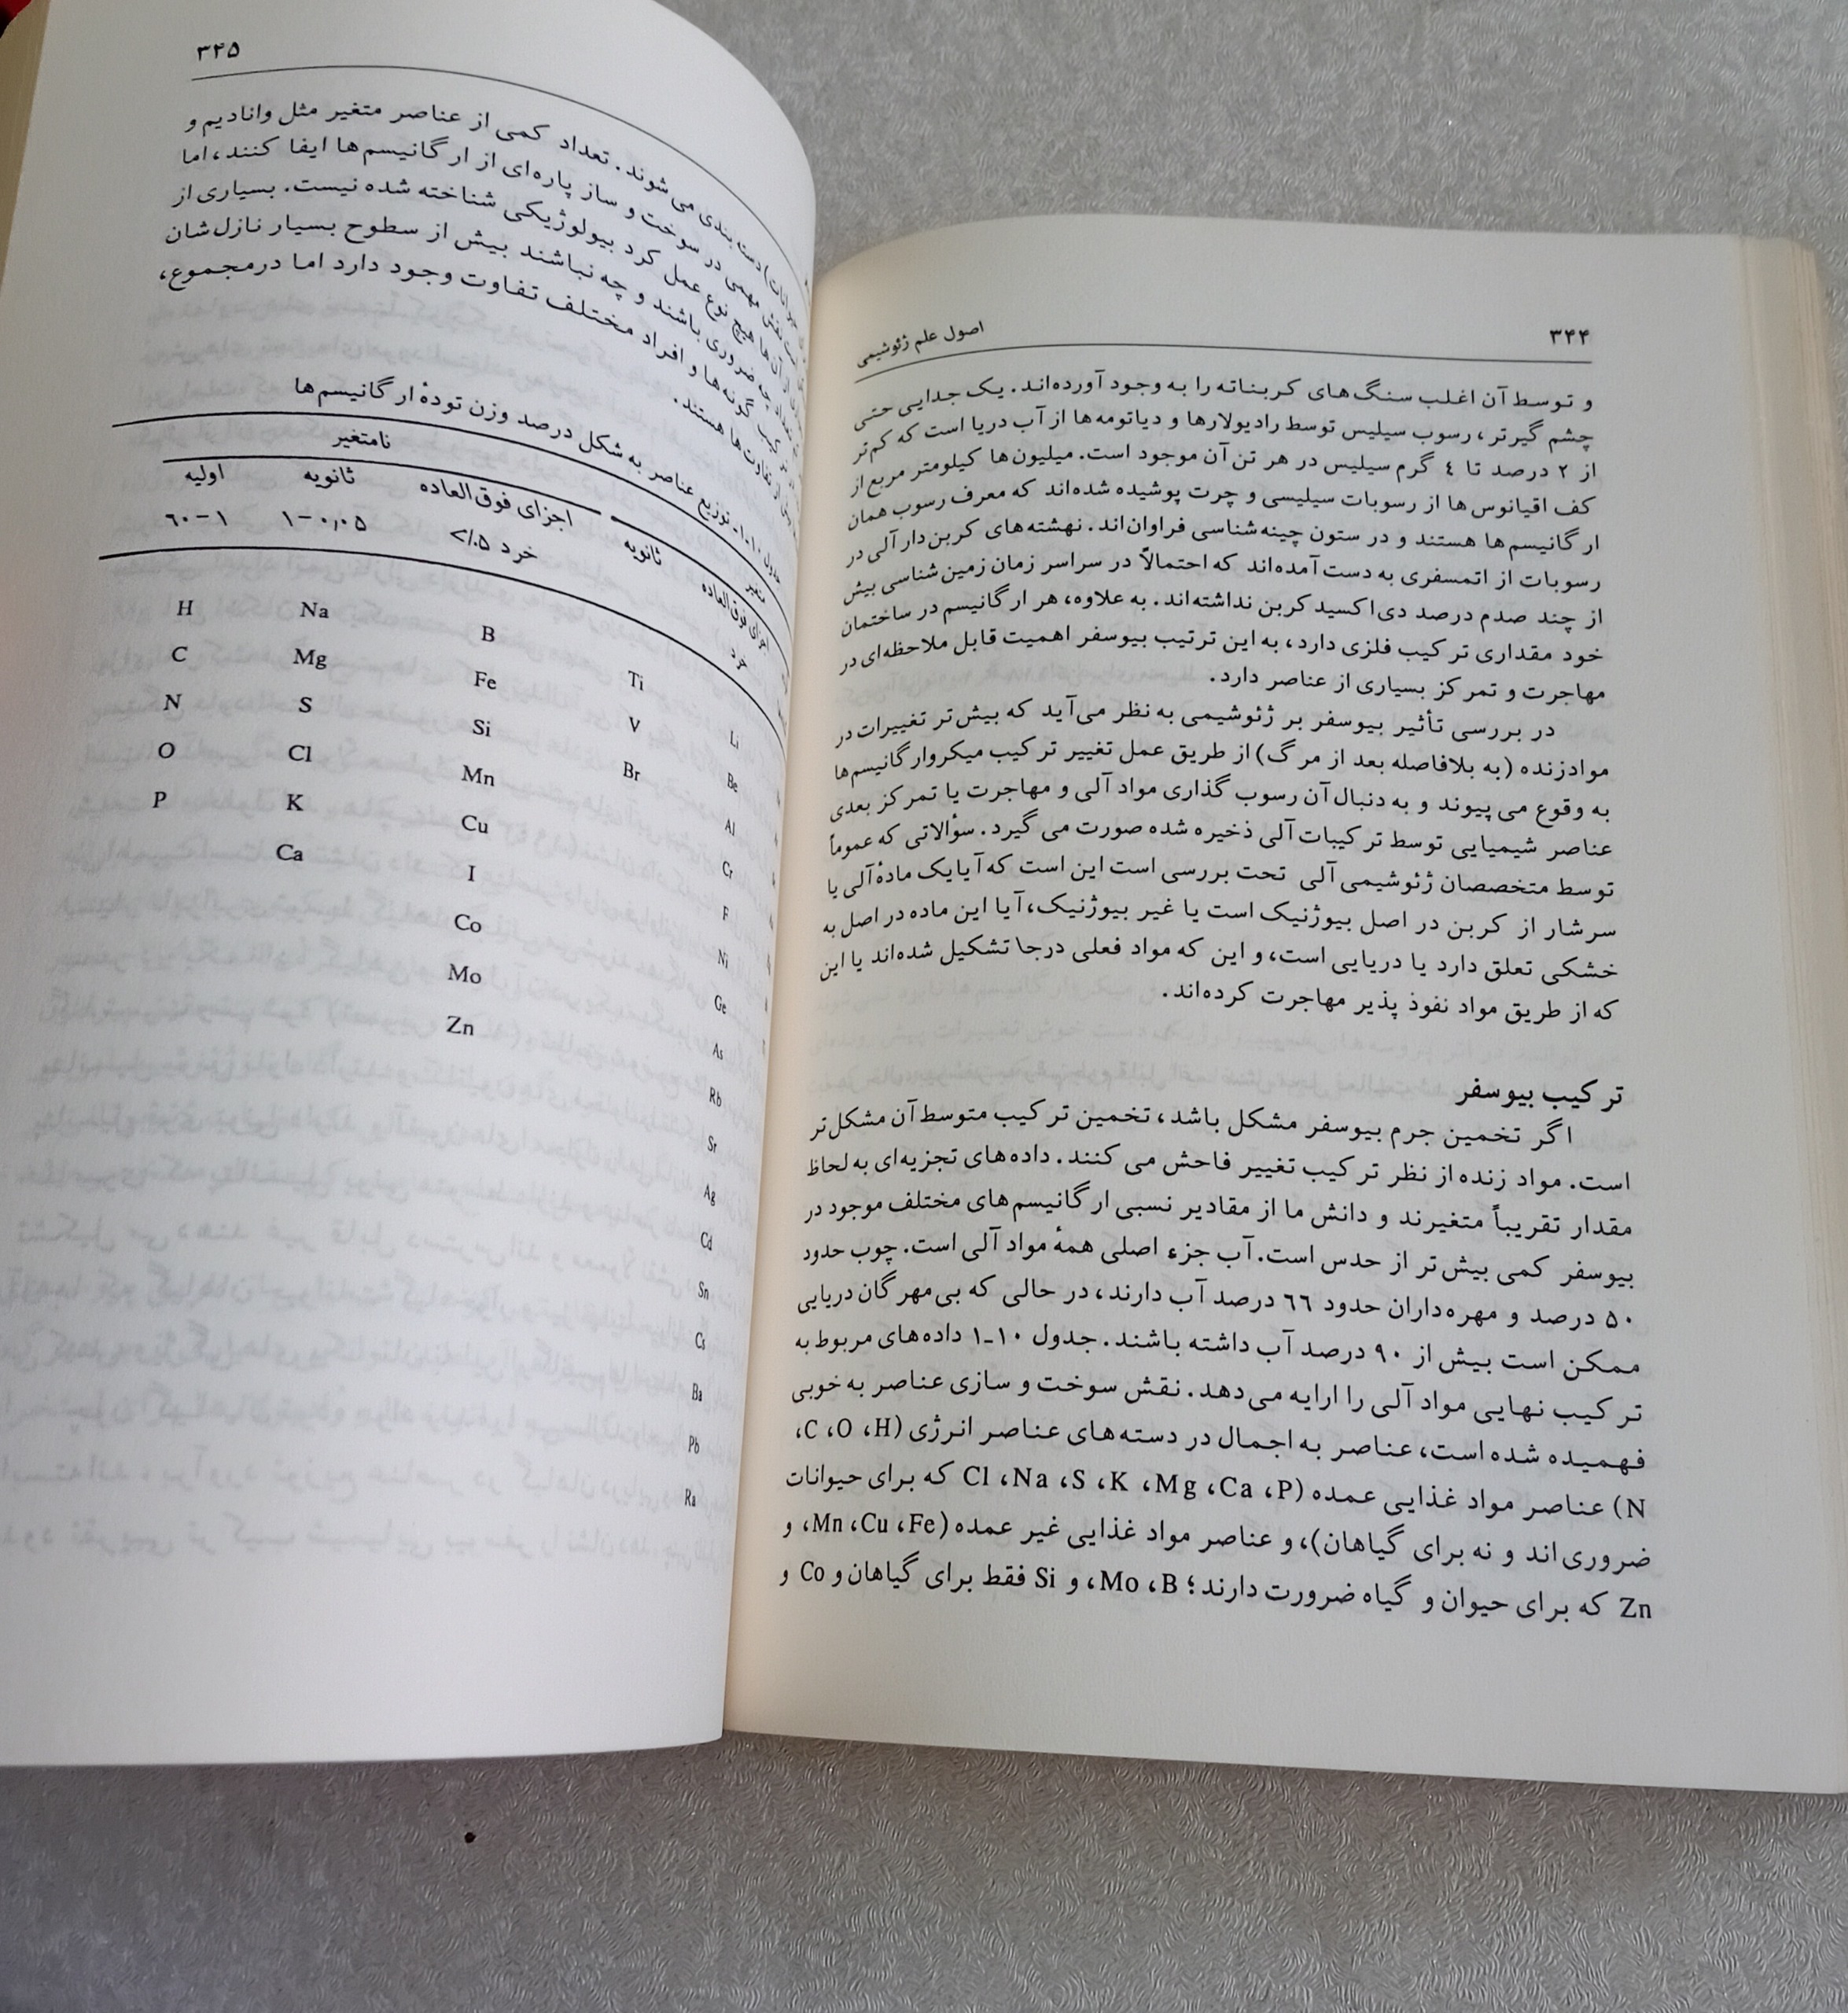 ۳۴۴
اصول علم ژئوشیمی
و توسط آن اغلب سنگ‌های کربناته را به وجود آورده‌اند. یک جدایی حتی
چشم گیرتر، رسوب سیلیس توسط رادیولارها و دیاتومه‌ها از آب دریا است که کم‌تر
از ۲ درصد تا ٤ گرم سیلیس در هر تن آن موجود است. میلیون‌ها کیلومتر مربع از
کف اقیانوس‌ها از رسوبات سیلیسی و چرت پوشیده شده‌اند که معرف رسوب همان
ارگانیسم‌ها هستند و در ستون چینه‌شناسی فراوان‌اند. نهشته‌های کربن‌دار آلی در
رسوبات از اتمسفری به دست آمده‌اند که احتمالاً در سراسر زمان زمین‌شناسی بیش
از چند صدم درصد دی‌اکسید کربن نداشته‌اند. به علاوه، هر ارگانیسم در ساختمان
خود مقداری ترکیب فلزی دارد، به این ترتیب بیوسفر اهمیت قابل ملاحظه‌ای در
مهاجرت و تمرکز بسیاری از عناصر دارد.
در بررسی تأثیر بیوسفر بر ژئوشیمی به نظر می‌آید که بیش‌تر تغییرات در
موادزنده (به بلافاصله بعد از مرگ) از طریق عمل تغییر ترکیب میکروارگانیسم‌ها
به وقوع می‌پیوند و به دنبال آن رسوب گذاری مواد آلی و مهاجرت یا تمرکز بعدی
عناصر شیمیایی توسط ترکیبات آلی ذخیره شده صورت می گیرد. سؤالاتی که عموماً
توسط متخصصان ژئوشیمی آلی تحت بررسی است این است که آیا یک مادهٔ آلی یا
سرشار از کربن در اصل بیوژنیک است یا غیر بیوژنیک، آیا این ماده در اصل به
خشکی تعلق دارد یا دریایی است، و این که مواد فعلی درجا تشکیل شده‌اند یا این
که از طریق مواد نفوذ پذیر مهاجرت کرده‌اند.
ترکیب بیوسفر
اگر تخمین جرم بیوسفر مشکل باشد، تخمین ترکیب متوسط آن مشکل‌تر
است. مواد زنده از نظر ترکیب تغییر فاحش می کنند. داده‌های تجزیه‌ای به لحاظ
مقدار تقریباً متغیرند و دانش ما از مقادیر نسبی ارگانیسم‌های مختلف موجود در
بیوسفر کمی بیش‌تر از حدس است. آب جزء اصلی همهٔ مواد آلی است. چوب حدود
۵۰ درصد و مهره‌داران حدود ٦٦ درصد آب دارند، در حالی که بی‌مهرگان دریایی
ممکن است بیش از ۹۰ درصد آب داشته باشند. جدول ۱۰-۱ داده‌های مربوط به
ترکیب نهایی مواد آلی را ارایه می‌دهد. نقش سوخت و سازی عناصر به خوبی
فهمیده شده است، عناصر به اجمال در دسته‌های عناصر انرژی (C ،O ،H،
N) عناصر مواد غذایی عمده (Cl ،Na ،S ،K ،Mg ،Ca ،P که برای حیوانات
ضروری‌اند و نه برای گیاهان)، و عناصر مواد غذایی غیر عمده (Mn ،Cu ،Fe، و
Zn که برای حیوان و گیاه ضرورت دارند؛ Mo ،B، و Si فقط برای گیاهان و Co و
۳۴۵
دسته بندی می شوند. تعداد کمی از عناصر متغیر مثل وانادیم و
نقش مهمی در سوخت و ساز پاره‌ای از ارگانیسم‌ها ایفا کنند، اما
از آن‌ها هیچ نوع عمل کرد بیولوژیکی شناخته شده نیست. بسیاری از
چه ضروری باشند و چه نباشند بیش از سطوح بسیار نازل‌شان
گونه‌ها و افراد مختلف تفاوت وجود دارد اما درمجموع،
تفاوت‌ها هستند.
جدول ۱۰-۱- توزیع عناصر به شکل درصد وزن تودهٔ ارگانیسم‌ها
نامتغیر
متغیر
اولیه ثانویه اجزای فوق‌العاده ثانویه اجزای فوق‌العاده
٦۰-۱ ۱-۰٫۰۵ خرد ۵٪> خرد
H Na B Ti Li
C Mg Fe V Be
N S Si Br Al
O Cl Mn Cr
P K Cu F
Ca I Ni
Co Ge
Mo As
Zn Rb
Sr
Ag
Cd
Sn
Cs
Ba
Pb
Ra